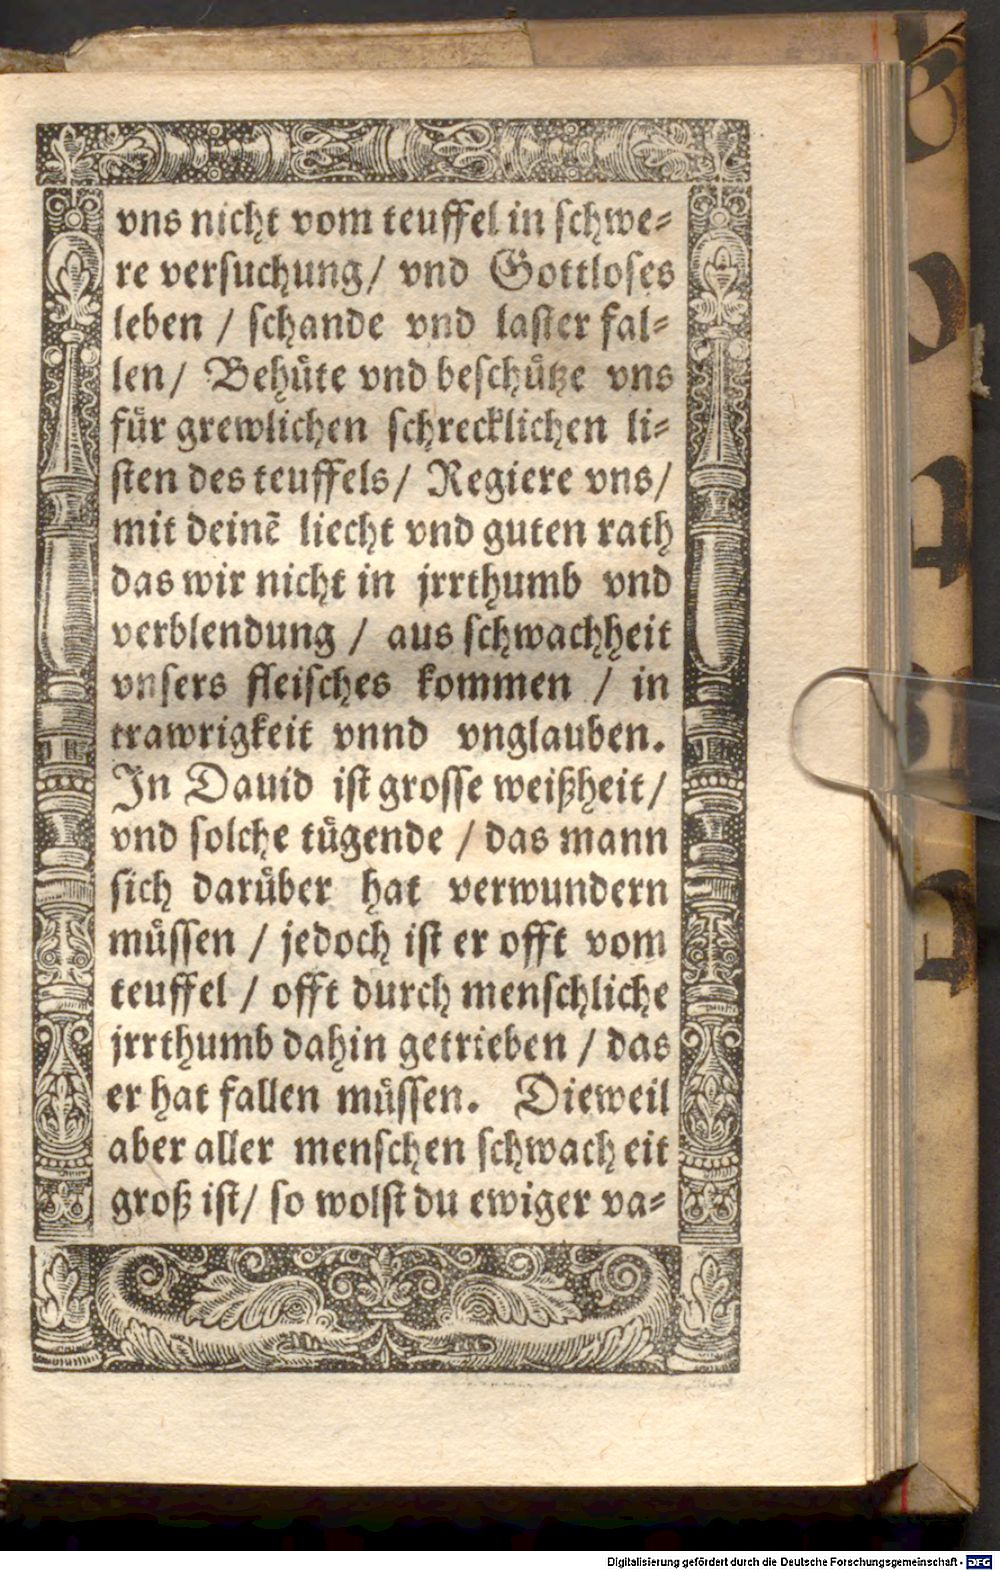 vns nicht vom teuffel in schwe⸗
re versuchung/ vnd Gottloses
leben / schande vnd laster fal⸗
len/ Behuͤte vnd beschuͤtze vns
fuͤr grewlichen schrecklichen li⸗
sten des teuffels/ Regiere vns/
mit deinē liecht vnd guten rath
das wir nicht in jrrthumb vnd
verblendung / aus schwachheit
vnsers fleisches kommen / in
trawrigkeit vnnd vnglauben.
In Dauid ist grosse weißheit/
vnd solche tuͤgende / das mann
sich daruͤber hat verwundern
muͤssen / jedoch ist er offt vom
teuffel / offt durch menschliche
jrrthumb dahin getrieben / das
er hat fallen muͤssen. Dieweil
aber aller menschen schwach eit
groß ist/ so wolst du ewiger va⸗
Digitalisierung gefördert durch die Deutsche Forschungsgemeinschaft - DFG